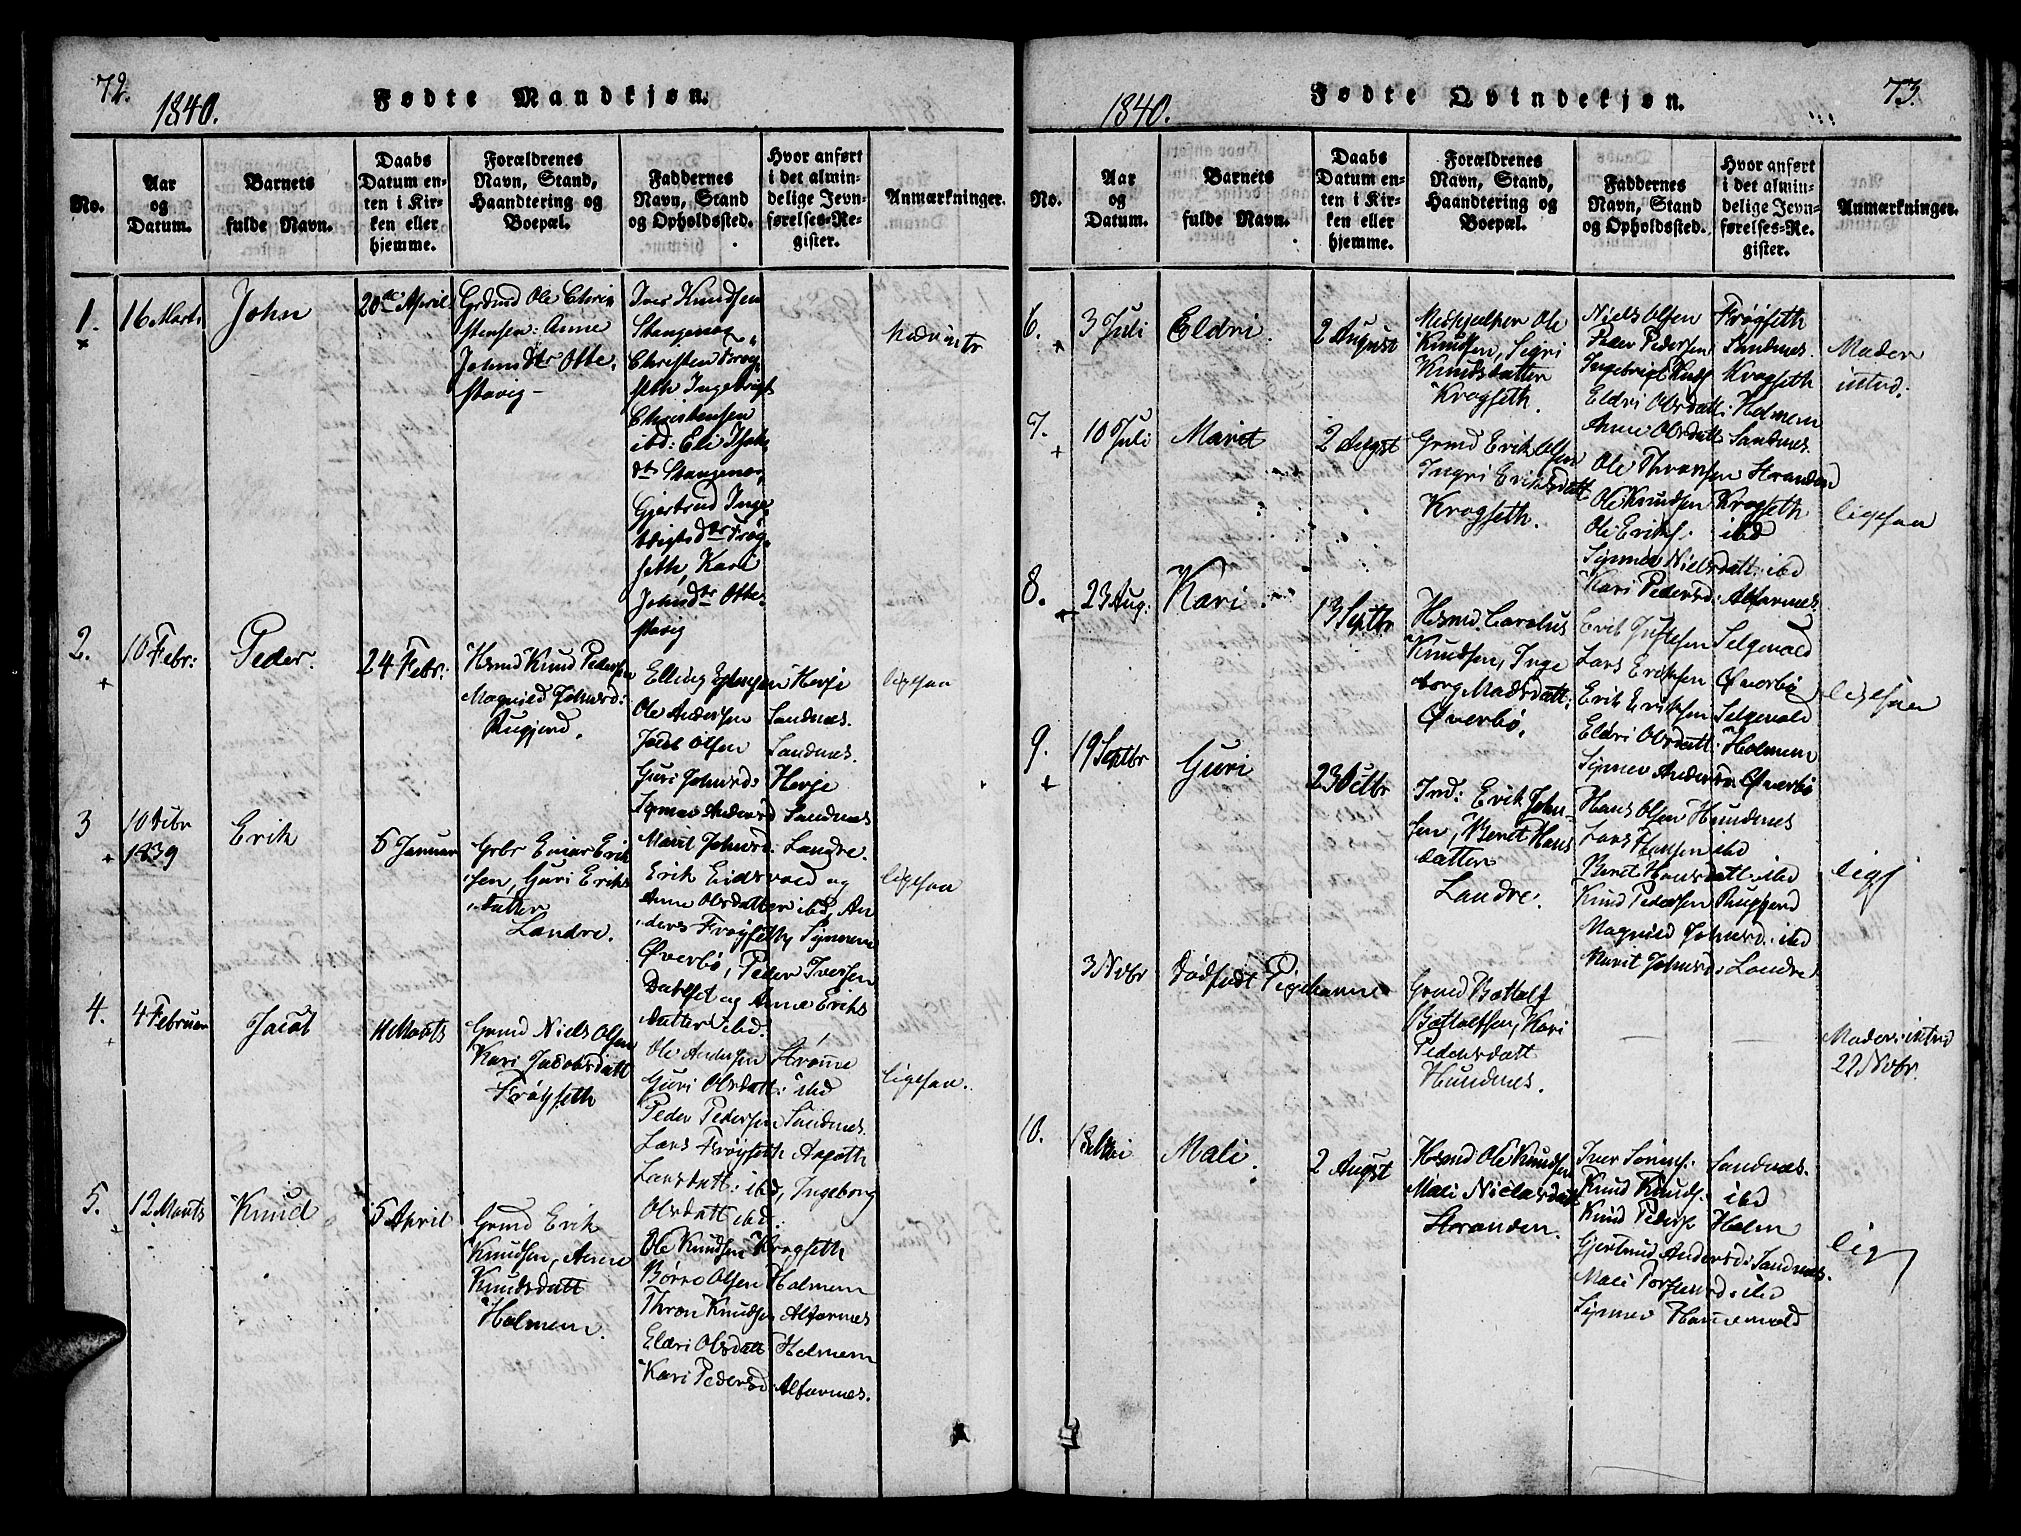 72.
1840.
Fødte Mandkjøn.
No.
Aar og Datum.
Barnets fulde Navn.
Daabs Datum enten i Kirken eller hjemme.
Forældrenes Navn, Stand, Haandtering og Boepæl.
Faddernes Navn, Stand og Opholdssted.
Hvor anført i det almindelige Jevnførelses-Register.
Anmærkninger.
1.
16 Marts
John
20de April
Grdmd Ole Chri
stensen: Anne
Johnsdtr Otte-
stavig
Iver Knudsen
Stangenæs,
Christen Frøy-
seth Ingebrigt
Christensen
ibd: Eli
dtr Stangenæs,
Gjertrud Inge-
brigtsdtr Frøy-
seth, Kari
Johnsdtr Otte-
stavig
2.
10 Febr:
Peder.
24 Febr:
Hsmd Knud Pedersen
Magnild Johnsd:
Rugjerd.
Elling Hersje
Ole Andersen Sandnes.
Jacob Olsen Sandnes.
Guri Johnsd: Hersje
Synnev Andersd Sandnes
Marit Johnsd: Landre.
ligesaa
3
10 Octbr
1839
Erik
5 Januar
Einar Erik
sen, Guri Eriks
datter
Landre.
Erik Eidsvold og
Anne Olsdatter ibd, An
ders Frøyseth, Synneve
Øverbø, Peder Iversen
Dahlset og Anne Eriks
datter ibd.
ligesaa
4.
4 Februar
Jacob
Marts
Grmd Niels Olsen
Kari Jacobsdatt
Frøyseth
Ole Andersen Strømme
Guri Olsdatt: ibd
Peder Pedersen Sandnes.
Lars Frøyseth Agathe
Larsdatt: ibd, Ingeborg
Olsdatt ibd.
ligesaa.
5.
12 Marts
Knud
5 April
Grmd Erik
Knudsen, Anne
Knudsdatt
Holmem.
Ole Knudsen Krogseth
Børre Olsen Holmem
Thron Knudsen Alfarnes
Eldri Olsdatt Holmem
Kari Pedersd: Alfarnes.
73.
1840.
Fødte Qvindekjøn.
No.
Aar og Datum.
Barnets fulde Navn.
Daabs Datum enten i Kirken eller hjemme.
Forældrenes Navn, Stand, Haandtering og Boepæl.
Faddernes Navn, Stand og Opholdssted.
Hvor anført i det almindelige Jevnførelses-Register.
Anmærkninger.
6.
3 Juli
Eldri.
2 August
Medhjælper Ole
Knudsen, Sigri
Knudsdatter
Krogseth.
Niels Olsen Frøyseth
Peder Pedersen Sandnes.
Ingebrigt Knuds Krogseth
Eldri Olsdatt: Holmem
Anne Olsdatt: Sandnes.
Moder
introd.
7.
10 Juli
Marit
2 Augst
Grmd Erik Olsen
Ingri Eriksdatt
Krogseth.
Ole Thronsen Stranden
Ole Knudsen Krogseth
Ole Eriks: ibd
Synnev Nielsdatt: ibd
Kari Pedersd: Alfarnes.
ligesaa
8.
23 Aug:
Kari.
13 Septbr
Hsmd Carolus
Knudsen, Inge
borg Madsdatt:
Øverbø.
Erik Justesen Selgevold
Lars Eriksen Øverbø
Erik Eriksen Selgevold
Eldri Olsdatt: Holmem
Synnev Andersd: Øverbø
ligesaa
9.
19 Septbr
Guri
23 Octbr
Ind: Erik John-
sen, Beret Hans
datter
Landre.
Hans Olsen Hundnes
Lars Hansen ibd
Beret Hansdatt: ibd
Knud Pedersen Rugjerd
Magnild Johnsd: ibd
Marit Johnsd: Landre
ligs
3 Novbr
dødfødt Pigebarn
Grmd Bottolf
Bottolfsen, Kari
Pedersdatt
Hundnes.
Moder introd
22 Novbr.
10.
Mai
Mali.
2 Augst
Hsmd Ole Knudsen
Mali Nielsdatt
Stranden.
Iver Sørens: Sandnes.
Knud Knuds: ibd
Knud Peders Holm
Gjertrud Andersd: Sandnes.
Mali Torstensd: ibd
Synnev
lig